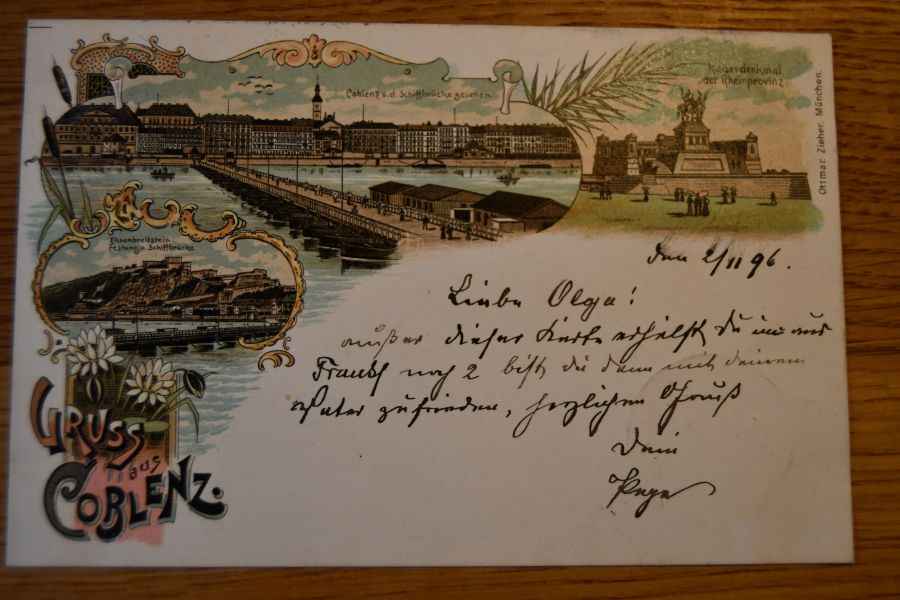 Coblenz v. d. Schiffbrücke gesehen.
Kaiserdenkmal
der Rheinprovinz.
Ottmar Zieher, München.
Ehrenbreitstein
Festung u. Schiffbrücke
GRUSS
aus
COBLENZ.
den 2/11 96.
Liebe Olga!
außer dieser Karte erhälst du
noch 2 bist du dann mit deinem
Vater zufrieden, herzlichen Gruß
Dein
Papa